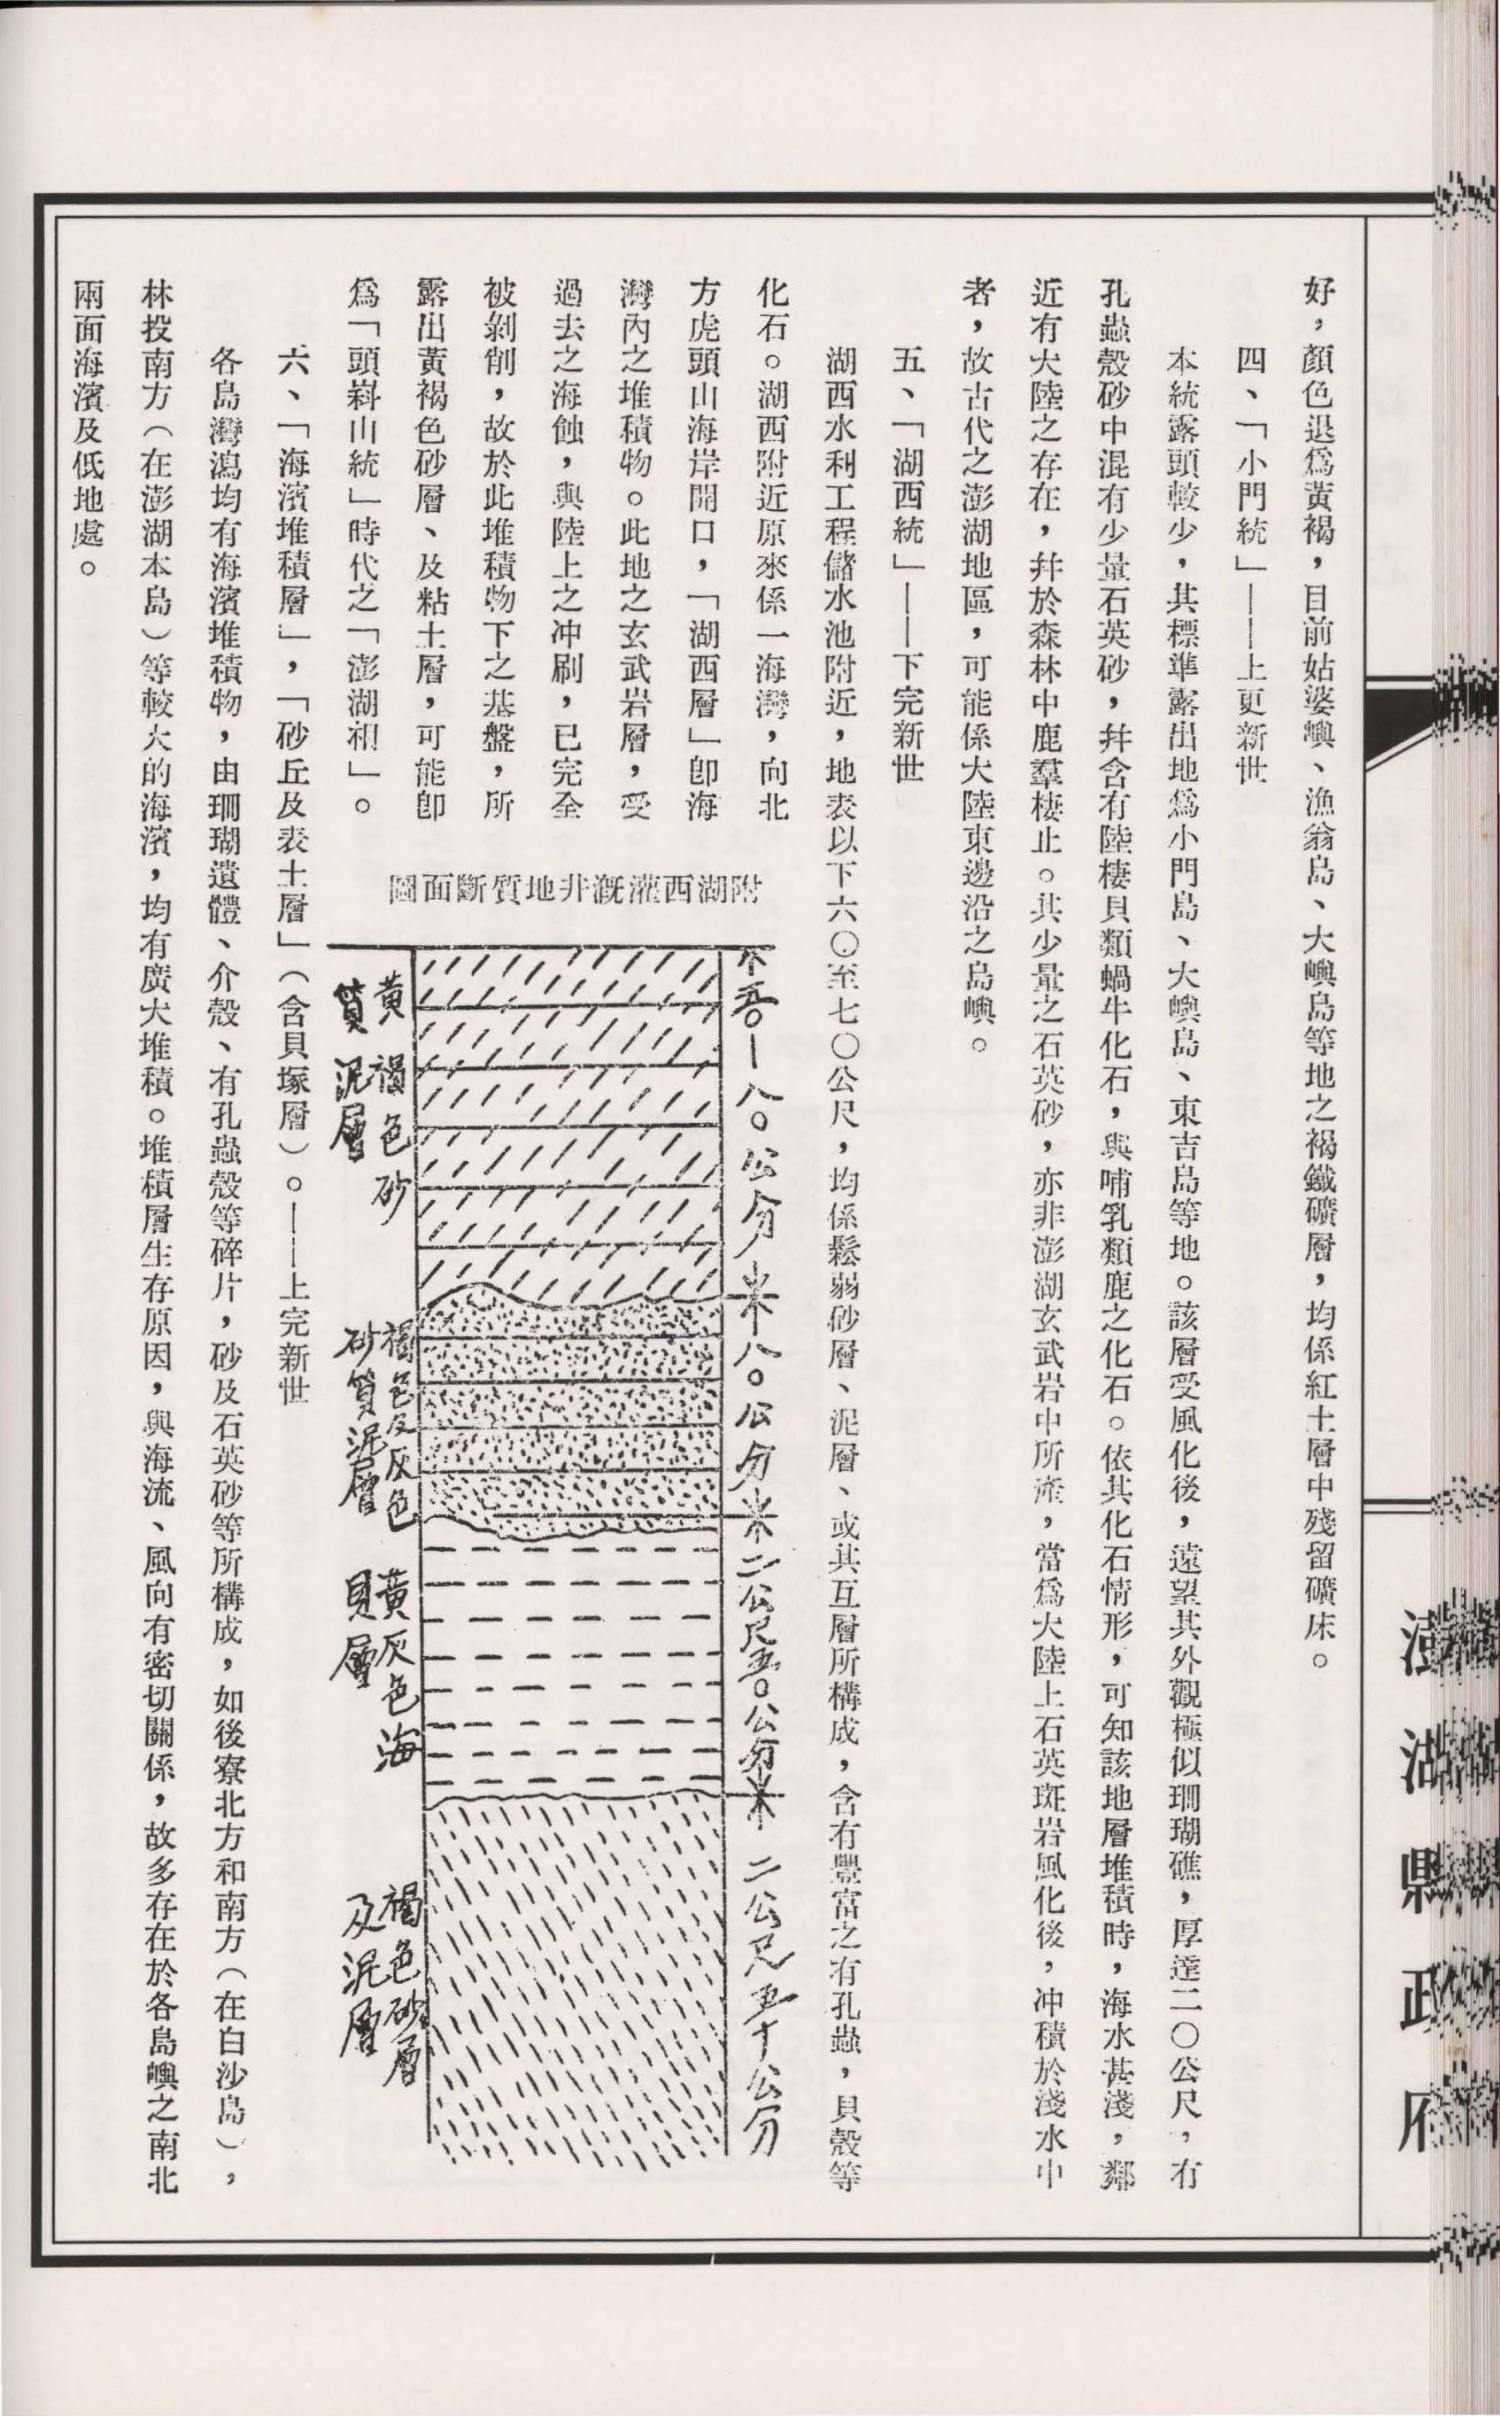 澎湖縣政府
好，顏色退爲黃褐，目前姑婆嶼、漁翁島、大嶼島等地之褐鐵礦層，均係紅土層中殘留礦床。
四、「小門統」——上更新世
本統露頭較少，其標準露出地爲小門島、大嶼島、東吉島等地。該層受風化後，遠望其外觀極似珊瑚礁，厚達二〇公尺，有
孔蟲殼砂中混有少量石英砂，幷含有陸棲貝類蝸牛化石，與哺乳類鹿之化石。依其化石情形，可知該地層堆積時，海水甚淺，鄰
近有大陸之存在，幷於森林中鹿羣棲止。其少量之石英砂，亦非澎湖玄武岩中所產，當爲大陸上石英斑岩風化後，冲積於淺水中
者，故古代之澎湖地區，可能係大陸東邊沿之島嶼。
五、「湖西統」——下完新世
湖西水利工程儲水池附近，地表以下六〇至七〇公尺，均係鬆弱砂層、泥層、或其互層所構成，含有豐富之有孔蟲，貝殼等
化石。湖西附近原來係一海灣，向北
方虎頭山海岸開口，「湖西層」卽海
灣內之堆積物。此地之玄武岩層，受
過去之海蝕，與陸上之冲刷，已完全
被剝削，故於此堆積物下之基盤，所
露出黃褐色砂層、及粘土層，可能卽
爲「頭嵙山統」時代之「澎湖相」。
附湖西灌漑井地質斷面圖
五〇—八〇公分
八〇公分
二公尺五〇公分
二公尺五十公分
黃褐色砂
質泥層
褐色及灰色
砂質泥層
黃灰色海
貝層
褐色砂層
及泥層
六、「海濱堆積層」，「砂丘及表土層」（含貝塚層）。——上完新世
各島灣潟均有海濱堆積物，由珊瑚遺體、介殼、有孔蟲殼等碎片，砂及石英砂等所構成，如後寮北方和南方（在白沙島），
林投南方（在澎湖本島）等較大的海濱，均有廣大堆積。堆積層生存原因，與海流、風向有密切關係，故多存在於各島嶼之南北
兩面海濱及低地處。